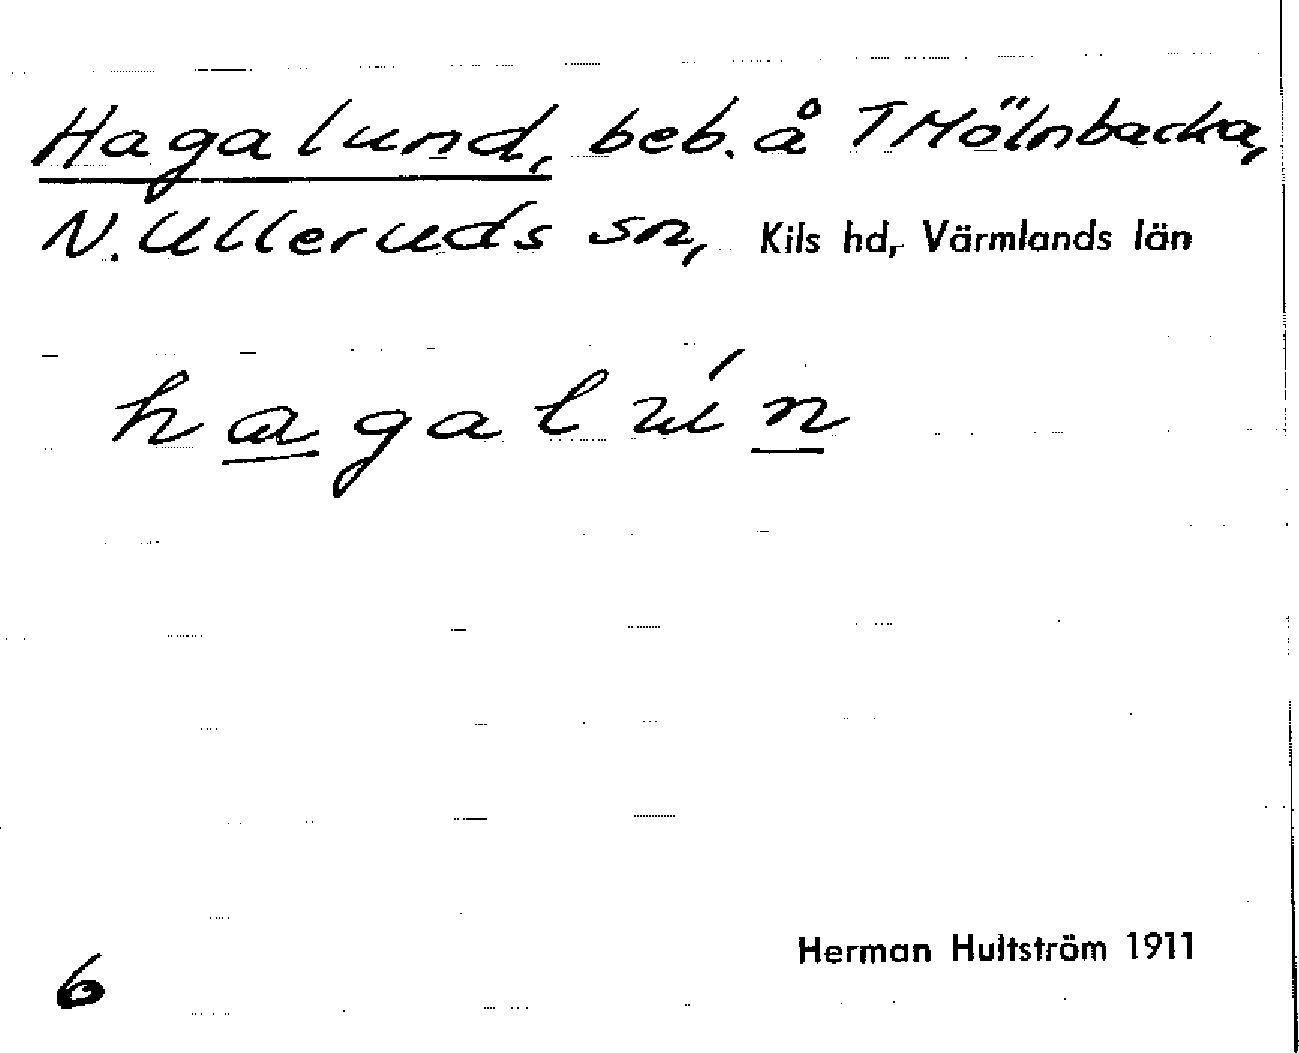 Hagalund, beb. å T Mölnbacka,
N. Ulleruds sn, Kils hd, Värmlands län
Herman Hultström 1911
6